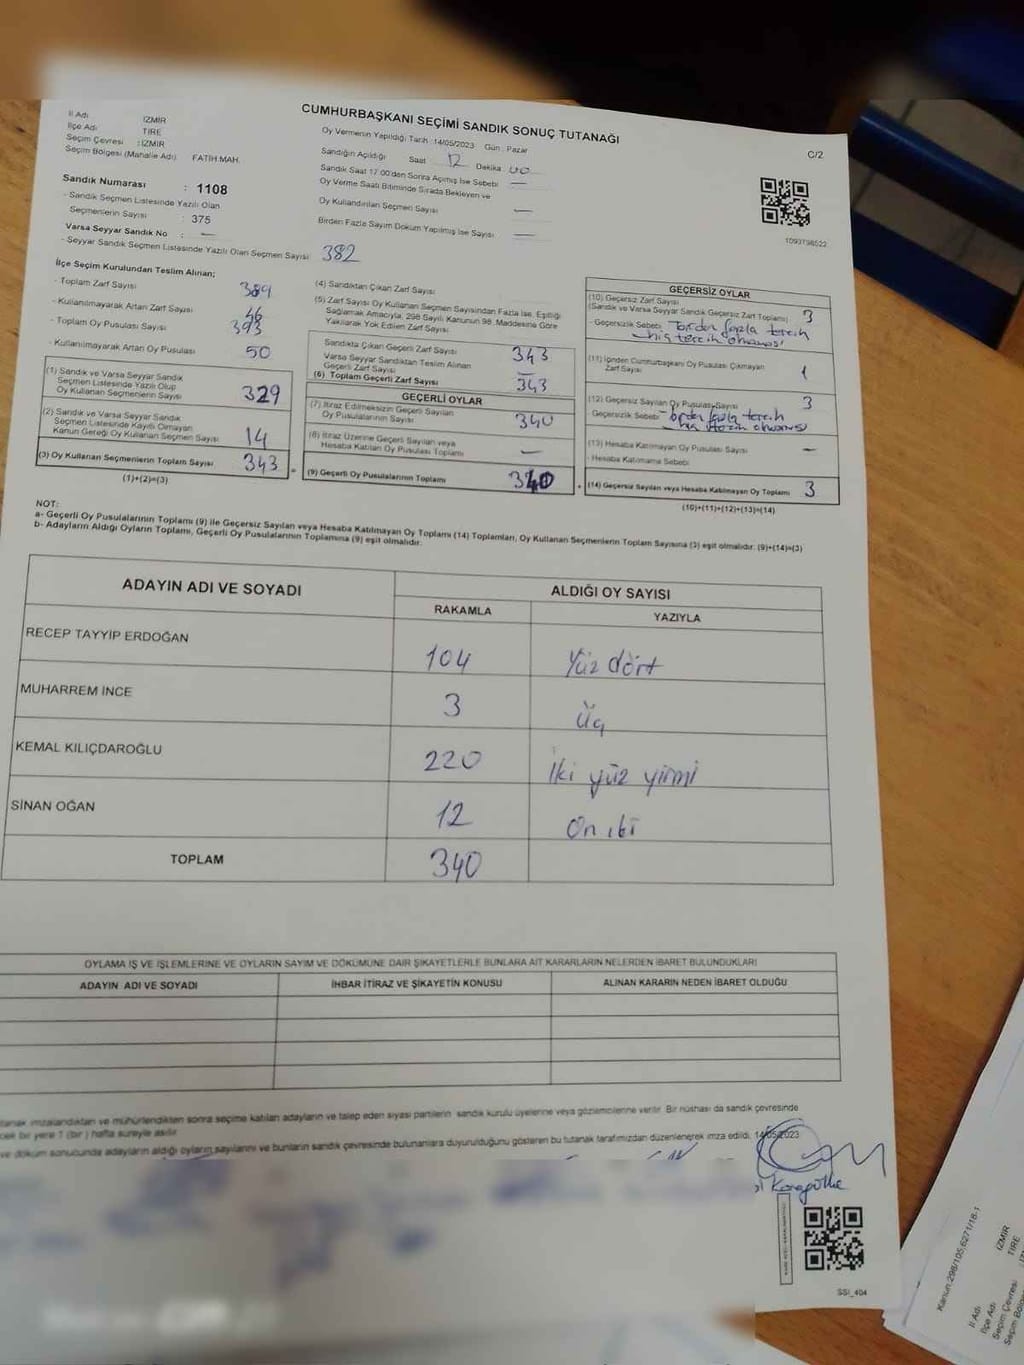 CUMHURBAŞKANI SEÇİMİ SANDIK SONUÇ TUTANAĞI
C/2
İl Adı İZMİR
İlçe Adı TİRE
Seçim Çevresi : İZMİR
Seçim Bölgesi (Mahalle Adı) FATİH MAH.
Sandık Numarası : 1108
- Sandık Seçmen Listesinde Yazılı Olan
Seçmenlerin Sayısı : 375
Varsa Seyyar Sandık No : —
- Seyyar Sandık Seçmen Listesinde Yazılı Olan Seçmen Sayısı 382
Oy Vermenin Yapıldığı Tarih :14/05/2023 Gün : Pazar
Sandığın Açıldığı Saat 12 Dakika 00
Sandık Saat 17:00'den Sonra Açılmış İse Sebebi —
Oy Verme Saati Bitiminde Sırada Bekleyen ve
Oy Kullandırılan Seçmen Sayısı —
Birden Fazla Sayım Döküm Yapılmış İse Sayısı —
1093798522
İlçe Seçim Kurulundan Teslim Alınan;
- Toplam Zarf Sayısı 389
- Kullanılmayarak Artan Zarf Sayısı 46
- Toplam Oy Pusulası Sayısı 393
- Kullanılmayarak Artan Oy Pusulası 50
(1) Sandık ve Varsa Seyyar Sandık
Seçmen Listesinde Yazılı Olup
Oy Kullanan Seçmenlerin Sayısı 329
(2) Sandık ve Varsa Seyyar Sandık
Seçmen Listesinde Kayıtlı Olmayan
Kanun Gereği Oy Kullanan Seçmen Sayısı 14
(3) Oy Kullanan Seçmenlerin Toplam Sayısı 343
(1)+(2)=(3)
(4) Sandıktan Çıkan Zarf Sayısı
(5) Zarf Sayısı Oy Kullanan Seçmen Sayısından Fazla İse, Eşitliği
Sağlamak Amacıyla, 298 Sayılı Kanunun 98. Maddesine Göre
Yakılarak Yok Edilen Zarf Sayısı
Sandıkta Çıkan Geçerli Zarf Sayısı 343
Varsa Seyyar Sandıktan Teslim Alınan
Geçerli Zarf Sayısı —
(6) Toplam Geçerli Zarf Sayısı 343
GEÇERLİ OYLAR
(7) İtiraz Edilmeksizin Geçerli Sayılan
Oy Pusulalarının Sayısı 340
(8) İtiraz Üzerine Geçerli Sayılan veya
Hesaba Katılan Oy Pusulası Toplamı —
(9) Geçerli Oy Pusulalarının Toplamı 340
GEÇERSİZ OYLAR
(10) Geçersiz Zarf Sayısı
(Sandık ve Varsa Seyyar Sandık Geçersiz Zarf Toplamı) 3
- Geçersizlik Sebebi birden fazla tercih
hiç tercih olmaması
(11) İçinden Cumhurbaşkanı Oy Pusulası Çıkmayan
Zarf Sayısı 1
(12) Geçersiz Sayılan Oy Pusulası Sayısı 3
- Geçersizlik Sebebi birden fazla tercih
hiç tercih olmaması
(13) Hesaba Katılmayan Oy Pusulası Sayısı —
- Hesaba Katılmama Sebebi
(14) Geçersiz Sayılan veya Hesaba Katılmayan Oy Toplamı 3
(10)+(11)+(12)+(13)=(14)
NOT:
a- Geçerli Oy Pusulalarının Toplamı (9) ile Geçersiz Sayılan veya Hesaba Katılmayan Oy Toplamı (14) Toplamları, Oy Kullanan Seçmenlerin Toplam Sayısına (3) eşit olmalıdır. (9)+(14)=(3)
b- Adayların Aldığı Oyların Toplamı, Geçerli Oy Pusulalarının Toplamına (9) eşit olmalıdır.
ADAYIN ADI VE SOYADI ALDIĞI OY SAYISI
RAKAMLA YAZIYLA
RECEP TAYYİP ERDOĞAN 104 Yüz dört
MUHARREM İNCE 3 Üç
KEMAL KILIÇDAROĞLU 220 İki yüz yirmi
SİNAN OĞAN 12 On iki
TOPLAM 340
OYLAMA İŞ VE İŞLEMLERİNE VE OYLARIN SAYIM VE DÖKÜMÜNE DAİR ŞİKAYETLERLE BUNLARA AİT KARARLARIN NELERDEN İBARET BULUNDUKLARI
ADAYIN ADI VE SOYADI İHBAR İTİRAZ VE ŞİKAYETİN KONUSU ALINAN KARARIN NEDEN İBARET OLDUĞU
tanak imzalandıktan ve mühürlendikten sonra seçime katılan adayların ve talep eden siyasi partilerin sandık kurulu üyelerine veya gözlemcilerine verilir. Bir nüshası da sandık çevresinde
cek bir yere 1 (bir) hafta süreyle asılır.
ve döküm sonucunda adayların aldığı oyların sayılarını ve bunların sandık çevresinde bulunanlara duyurulduğunu gösteren bu tutanak tarafımızdan düzenlenerek imza edildi. 14/05/2023
SSİ_404
Kanun:298/105,6271/18-1
İl Adı İZMİR
İlçe Adı TİRE
Seçim Çevresi
Seçim Bölgesi